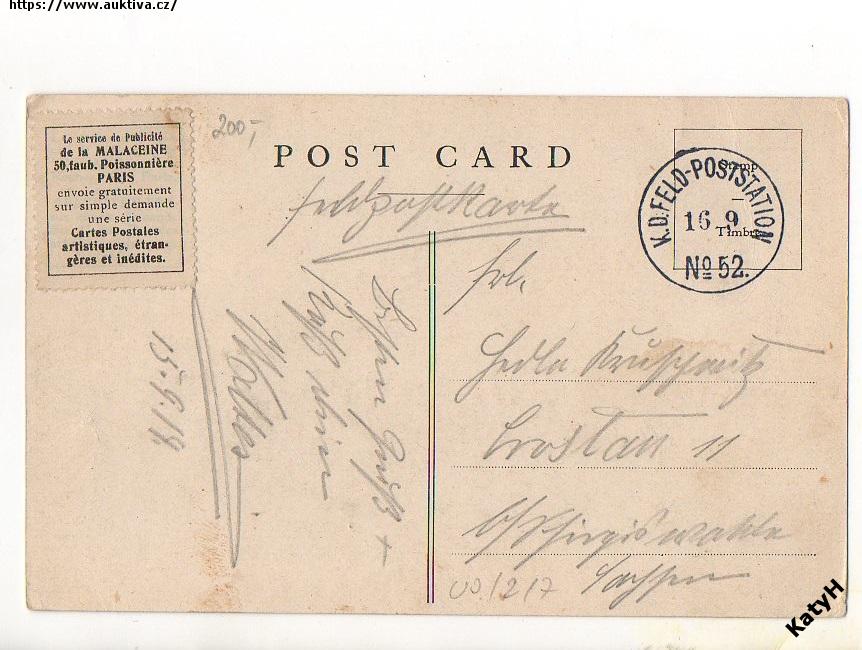 https://www.auktiva.cz/
Le service de Publicité
de la MALACEINE
50, faub. Poissonnière
PARIS
envoie gratuitement
sur simple demande
une série
Cartes Postales
artistiques, étran-
gères et inédites.
200,-
POST CARD
Feldpostkarte
Stamp
Timbre
K.D. FELD-POSTSTATION
16 9
No 52.
Frl.
Hedla
Crostau 11
Sachsen
Gruß
15.9.19.
KatyH